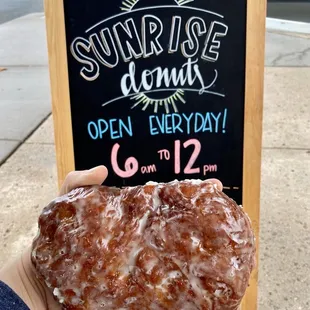 SUNRISE
donuts
OPEN EVERYDAY!
6am TO 12pm